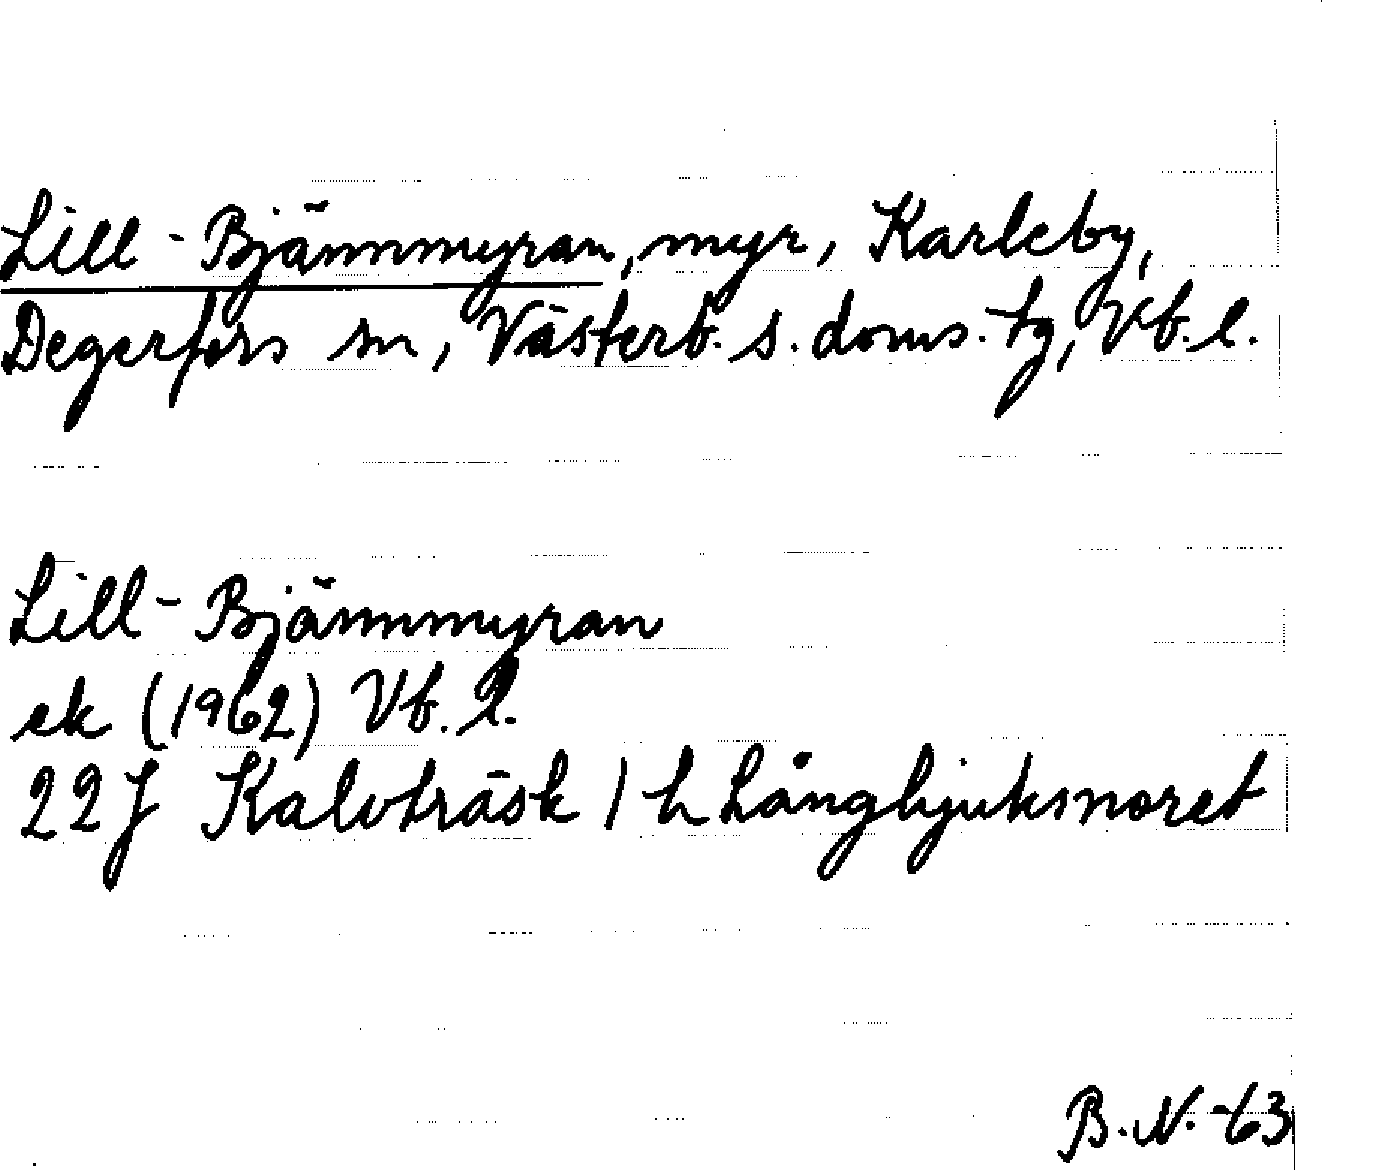 Lill-Bjännmyran, myr, Karleby,
Degerfors sn, Västerb. s. doms. tg, Vb. l.
Lill-Bjännmyran
ek (1962) Vb. l.
22J Kalvträsk / h Långhjuksnoret
B. N. -63